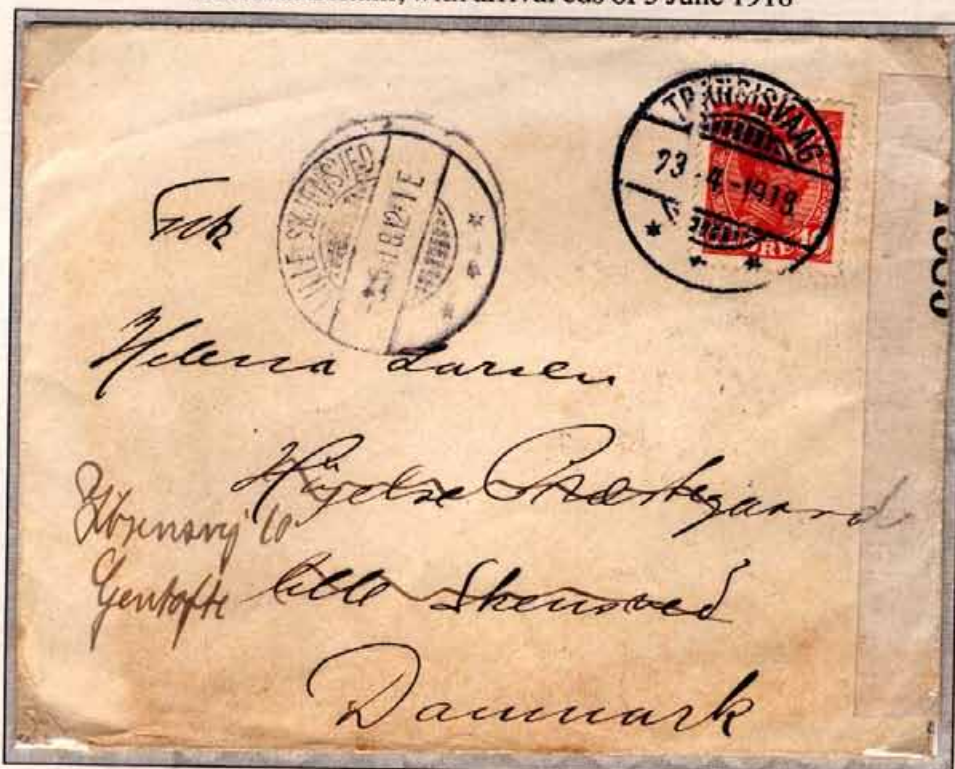 with arrival cds of 5 June 1918
TRANGISVAAG
23.-4-1918
ØRE
LILLE SKJENSVED
-5-6-18.12-1 E
Frk
Helena Larsen
Højelse Præstegaard
Ibsensvej 10
Gentofte lille Skensved
Danmark